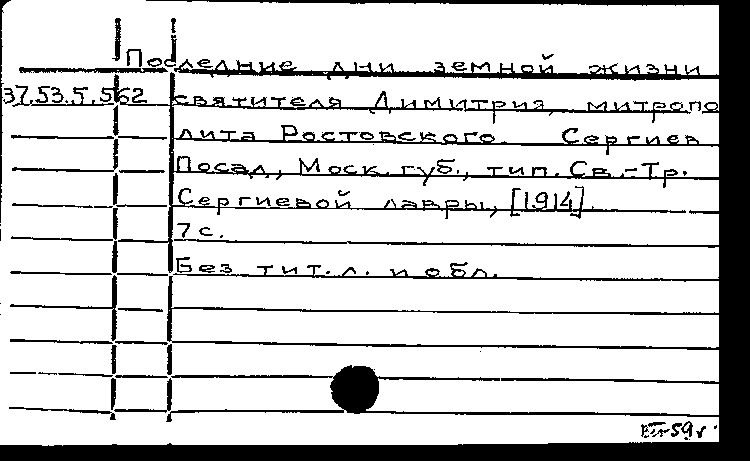 Последние дни земной жизни
37.53.5.562 святителя Димитрия, митропо
лита Ростовского. Сергиев
Посад, Моск. губ., тип. Св.-Тр.
Сергиевой лавры, [1914].
7 с.
Без тит. л. и обл.